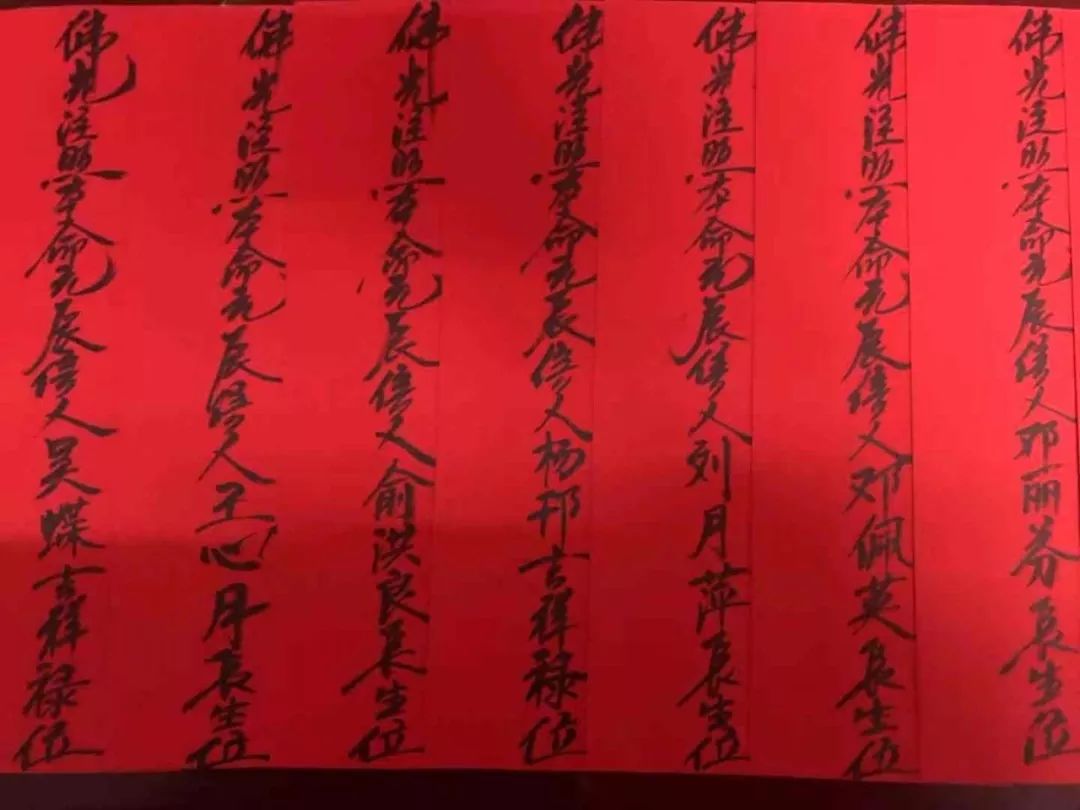 佛光注照本命元辰信人邓丽芬长生位
佛光注照本命元辰信人邓佩英长生位
佛光注照本命元辰信人刘月萍长生位
佛光注照本命元辰信人杨邗吉祥禄位
佛光注照本命元辰信人俞洪良长生位
佛光注照本命元辰信人王心月长生位
佛光注照本命元辰信人吴蝶吉祥禄位